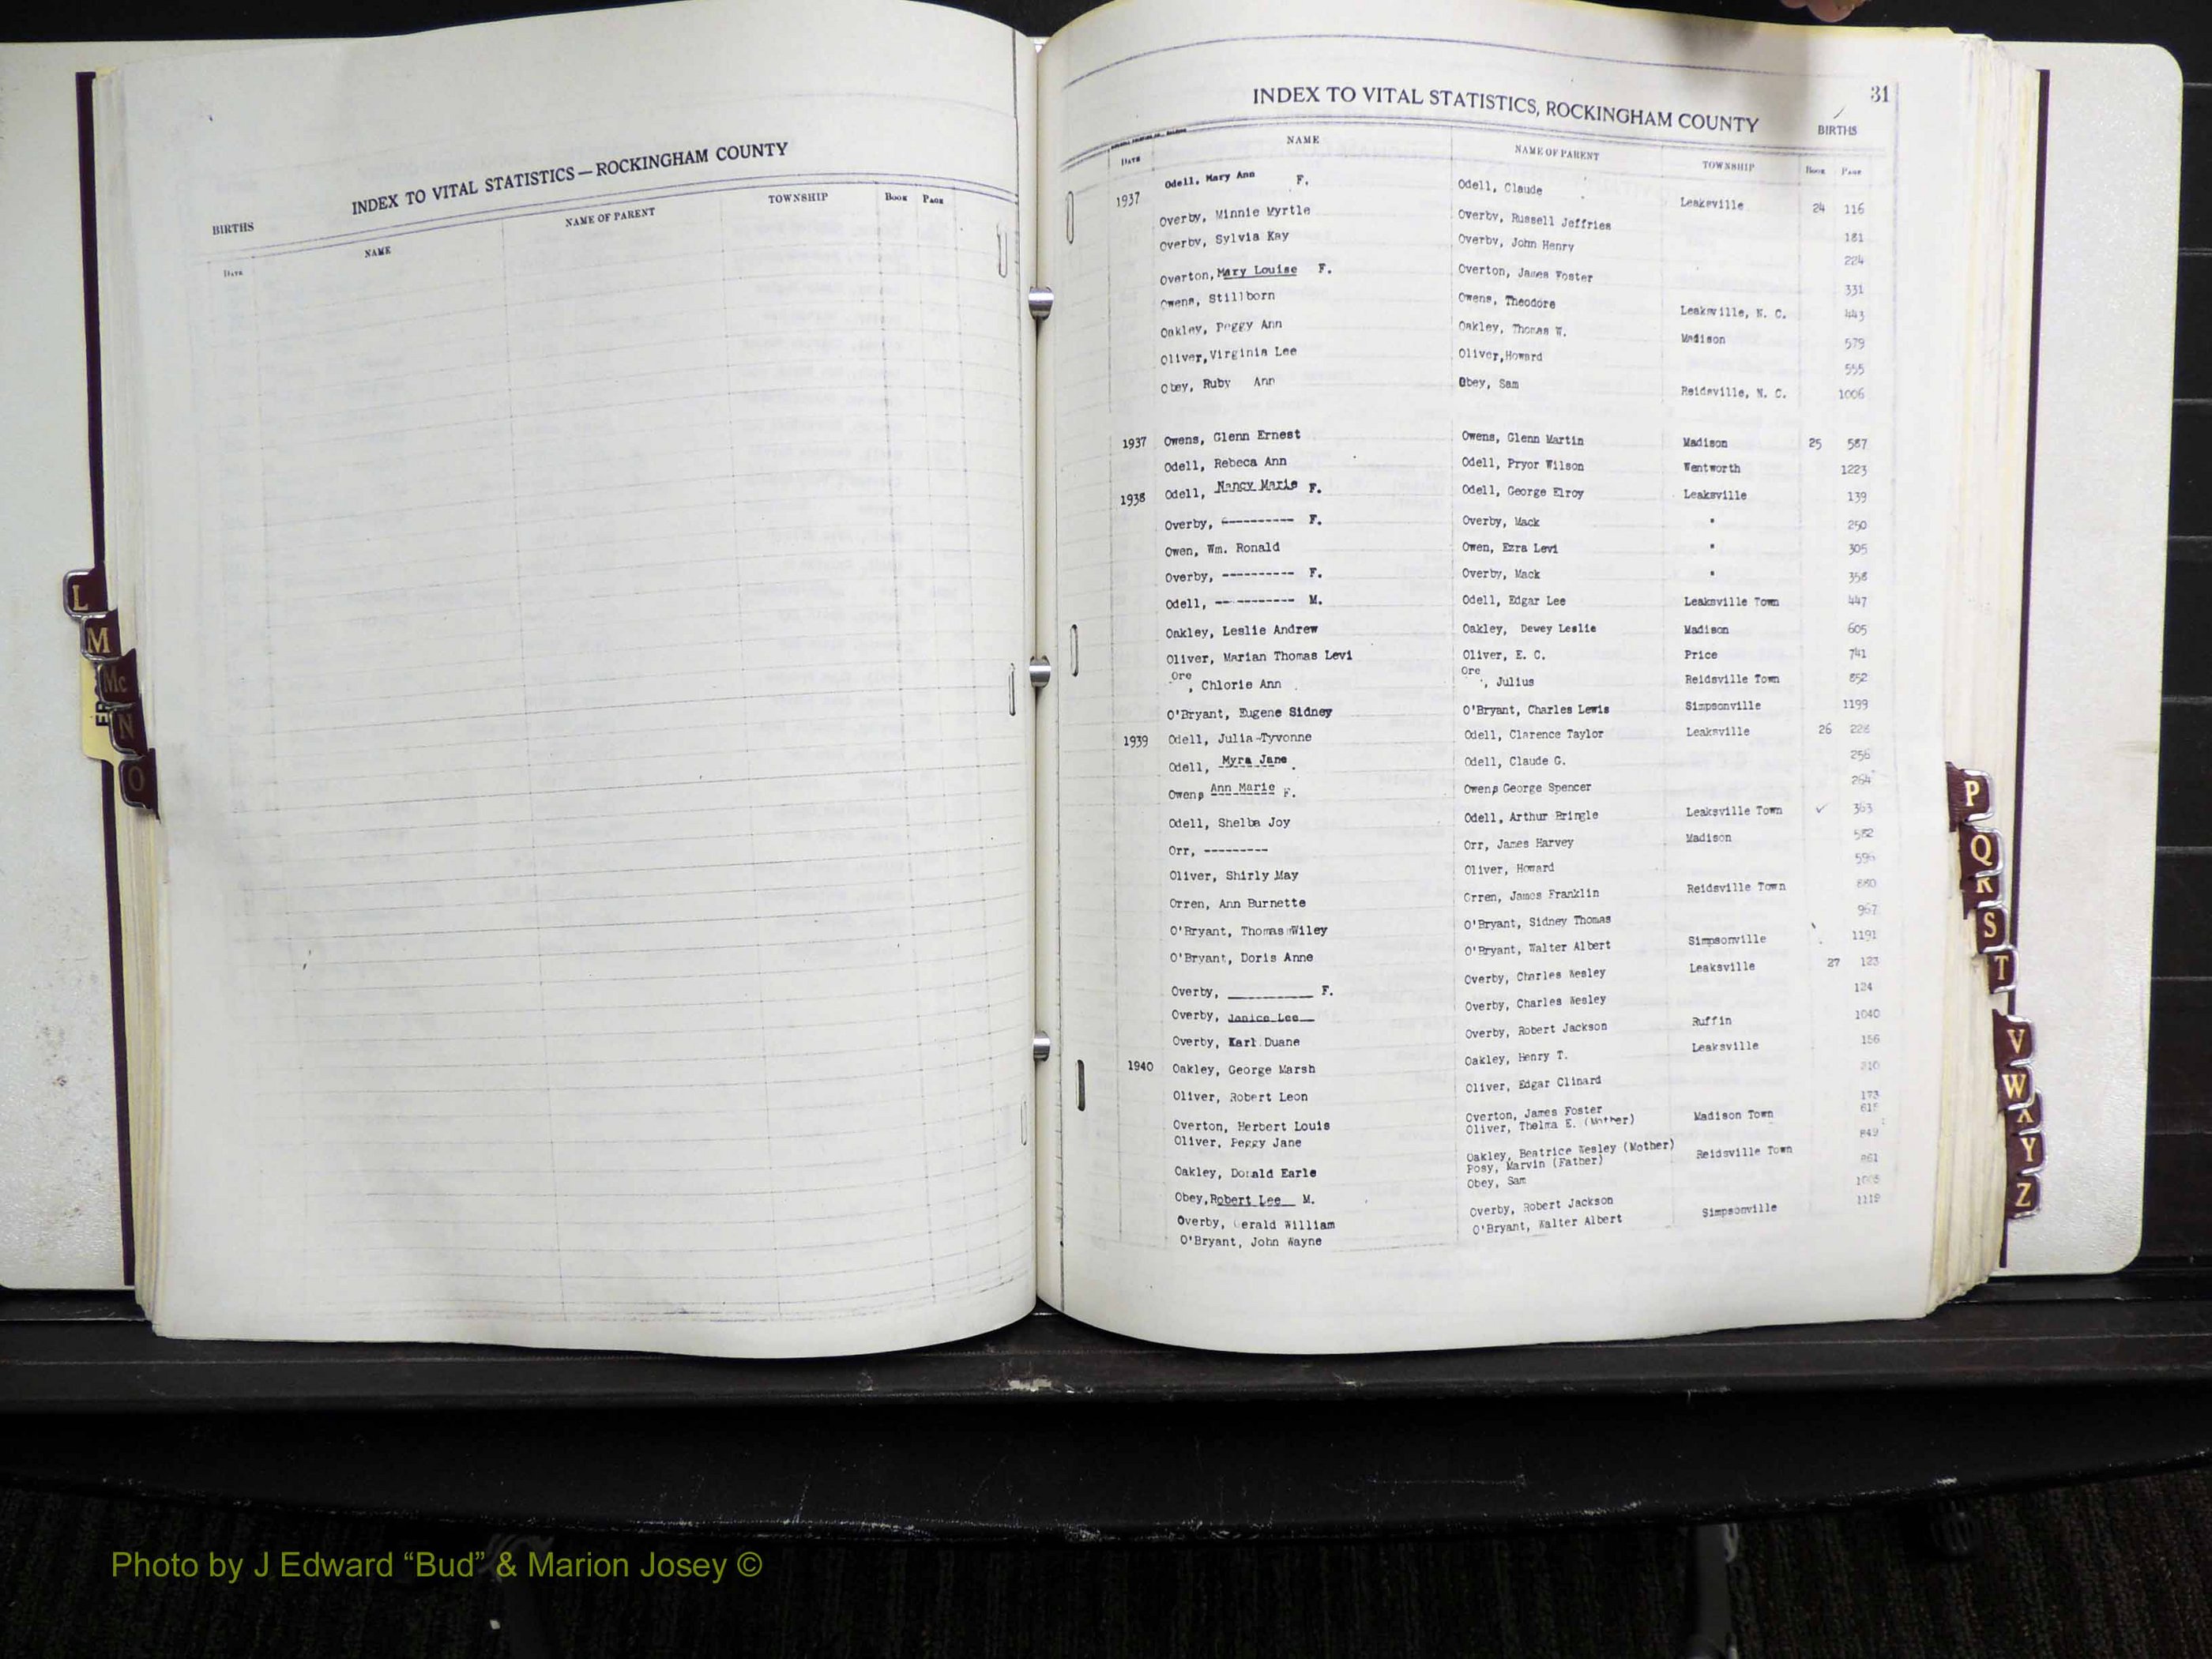 INDEX TO VITAL STATISTICS — ROCKINGHAM COUNTY
BIRTHS
DATE NAME NAME OF PARENT TOWNSHIP BOOK PAGE
L
M
Mc
N
O
31
INDEX TO VITAL STATISTICS, ROCKINGHAM COUNTY
BIRTHS
DATE NAME NAME OF PARENT TOWNSHIP BOOK PAGE
1937 Odell, Mary Ann F. Odell, Claude Leaksville 24 116
Overby, Minnie Myrtle Overby, Russell Jeffries 181
Overby, Sylvia Kay Overby, John Henry 224
Overton, Mary Louise F. Overton, James Foster 331
Owens, Stillborn Owens, Theodore Leaksville, N. C. 443
Oakley, Peggy Ann Oakley, Thomas W. Madison 579
Oliver, Virginia Lee Oliver, Howard 555
Obey, Ruby Ann Obey, Sam Reidsville, N. C. 1006
1937 Owens, Glenn Ernest Owens, Glenn Martin Madison 25 587
Odell, Rebeca Ann Odell, Pryor Wilson Wentworth 1223
1938 Odell, Nancy Marie F. Odell, George Elroy Leaksville 139
Overby, ---------- F. Overby, Mack " 250
Owen, Wm. Ronald Owen, Ezra Levi " 305
Overby, ---------- F. Overby, Mack " 358
Odell, ----------- M. Odell, Edgar Lee Leaksville Town 447
Oakley, Leslie Andrew Oakley, Dewey Leslie Madison 605
Oliver, Marian Thomas Levi Oliver, E. C. Price 741
Ore, Chlorie Ann Ore, Julius Reidsville Town 852
O'Bryant, Eugene Sidney O'Bryant, Charles Lewis Simpsonville 1199
1939 Odell, Julia Tyvonne Odell, Clarence Taylor Leaksville 26
Odell, Myra Jane Odell, Claude G. 256
Owens Ann Marie F. Owens George Spencer 264
Odell, Shelba Joy Odell, Arthur Pringle Leaksville Town ✓ 363
Orr, --------- Orr, James Harvey Madison 582
Oliver, Shirly May Oliver, Howard
Orren, Ann Burnette Orren, James Franklin Reidsville Town
O'Bryant, Thomas Wiley O'Bryant, Sidney Thomas 967
O'Bryant, Doris Anne O'Bryant, Walter Albert Simpsonville 1191
Overby, __________ F. Overby, Charles Wesley Leaksville 27 123
Overby, Janice Lee Overby, Charles Wesley 124
Overby, Karl Duane Overby, Robert Jackson Ruffin 1040
1940 Oakley, George Marsh Oakley, Henry T. Leaksville 156
Oliver, Robert Leon Oliver, Edgar Clinard
Overton, Herbert Louis Overton, James Foster 173
Oliver, Peggy Jane Oliver, Thelma E. (Mother) Madison Town
Oakley, Donald Earle Oakley, Beatrice Wesley (Mother)
Posy, Marvin (Father) Reidsville Town
Obey, Robert Lee M. Obey, Sam
Overby, Gerald William Overby, Robert Jackson
O'Bryant, John Wayne O'Bryant, Walter Albert Simpsonville
P
Q
R
S
T
V
W
X
Y
Z
Photo by J Edward “Bud” & Marion Josey ©